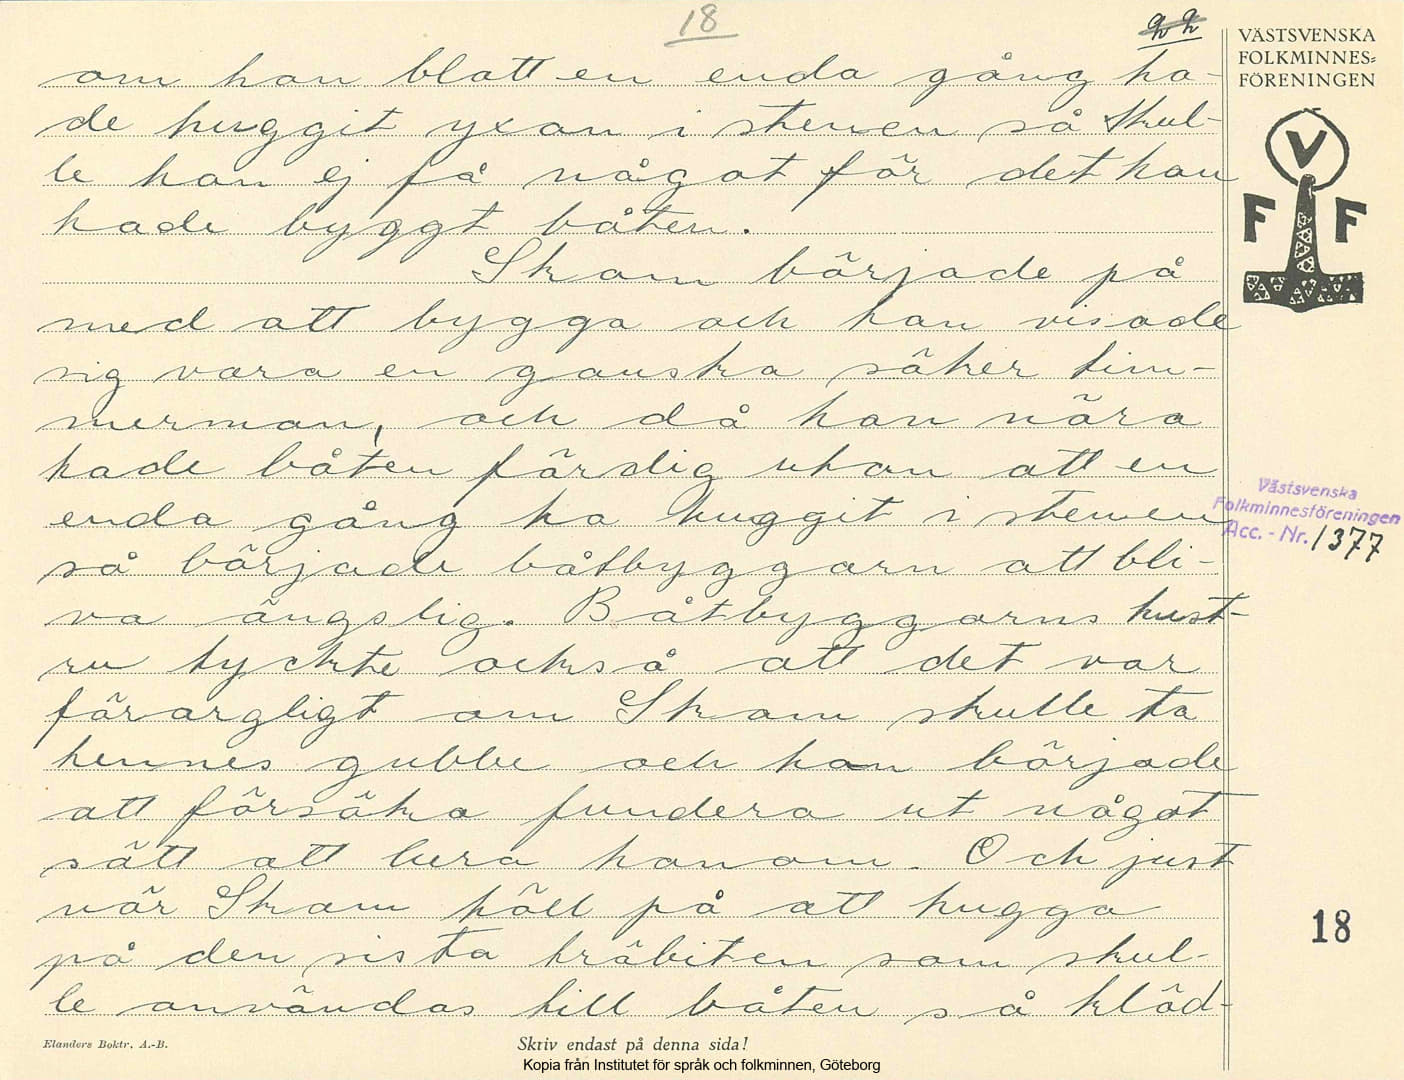 18
22
VÄSTSVENSKA
FOLKMINNES=
FÖRENINGEN
V
F F
om han blatt en enda gång ha-
de huggit yxan i stenen så skul-
le han ej få något för det han
hade byggt båten.
Skam började på
med att bygga och han visade
sig vara en ganska säker tim-
merman, och då han nära
hade båten färdig utan att en
enda gång ha huggit i stenen
så började båtbyggarn att bli-
va ängslig. Båtbyggarns hust-
ru tyckte också att det var
förargligt om Skam skulle ta
hennes gubbe och han började
att försöka fundera ut något
sätt att lura honom. Och just
när Skam höll på att hugga
på den sista träbiten som skul-
le användas till båten så kläd-
Västsvenska
Folkminnesföreningen
Acc. - Nr. 1377
18
Elanders Boktr. A.-B.
Skriv endast på denna sida!
Kopia från Institutet för språk och folkminnen, Göteborg